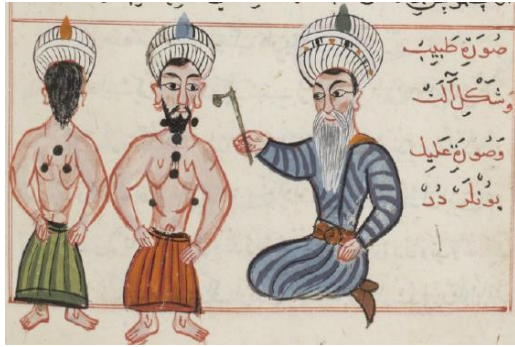 صُورَةِ طَبِيبْ
وَشَكْلِ آلَتْ
وَصُورَةِ عَلِيلْ
بُونْلَرْ دُرْ